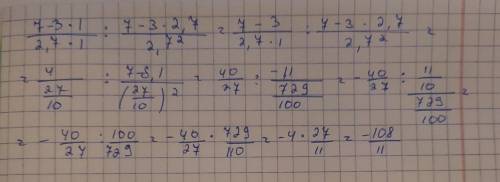 (7-3·1)/(2,7·1) : (7-3·2,7)/(2,7²) = (7-3)/(2,7·1) : (7-3·2,7)/(2,7²) =
= 4/(27/10) : (7-8,1)/((27/10)²) = 40/27 : (-11)/(729/100) = - 40/27 : (11/10)/(729/100) =
= - 40/27 · 100/729 = - 40/27 · 729/110 = -4 · 27/11 = -108/11